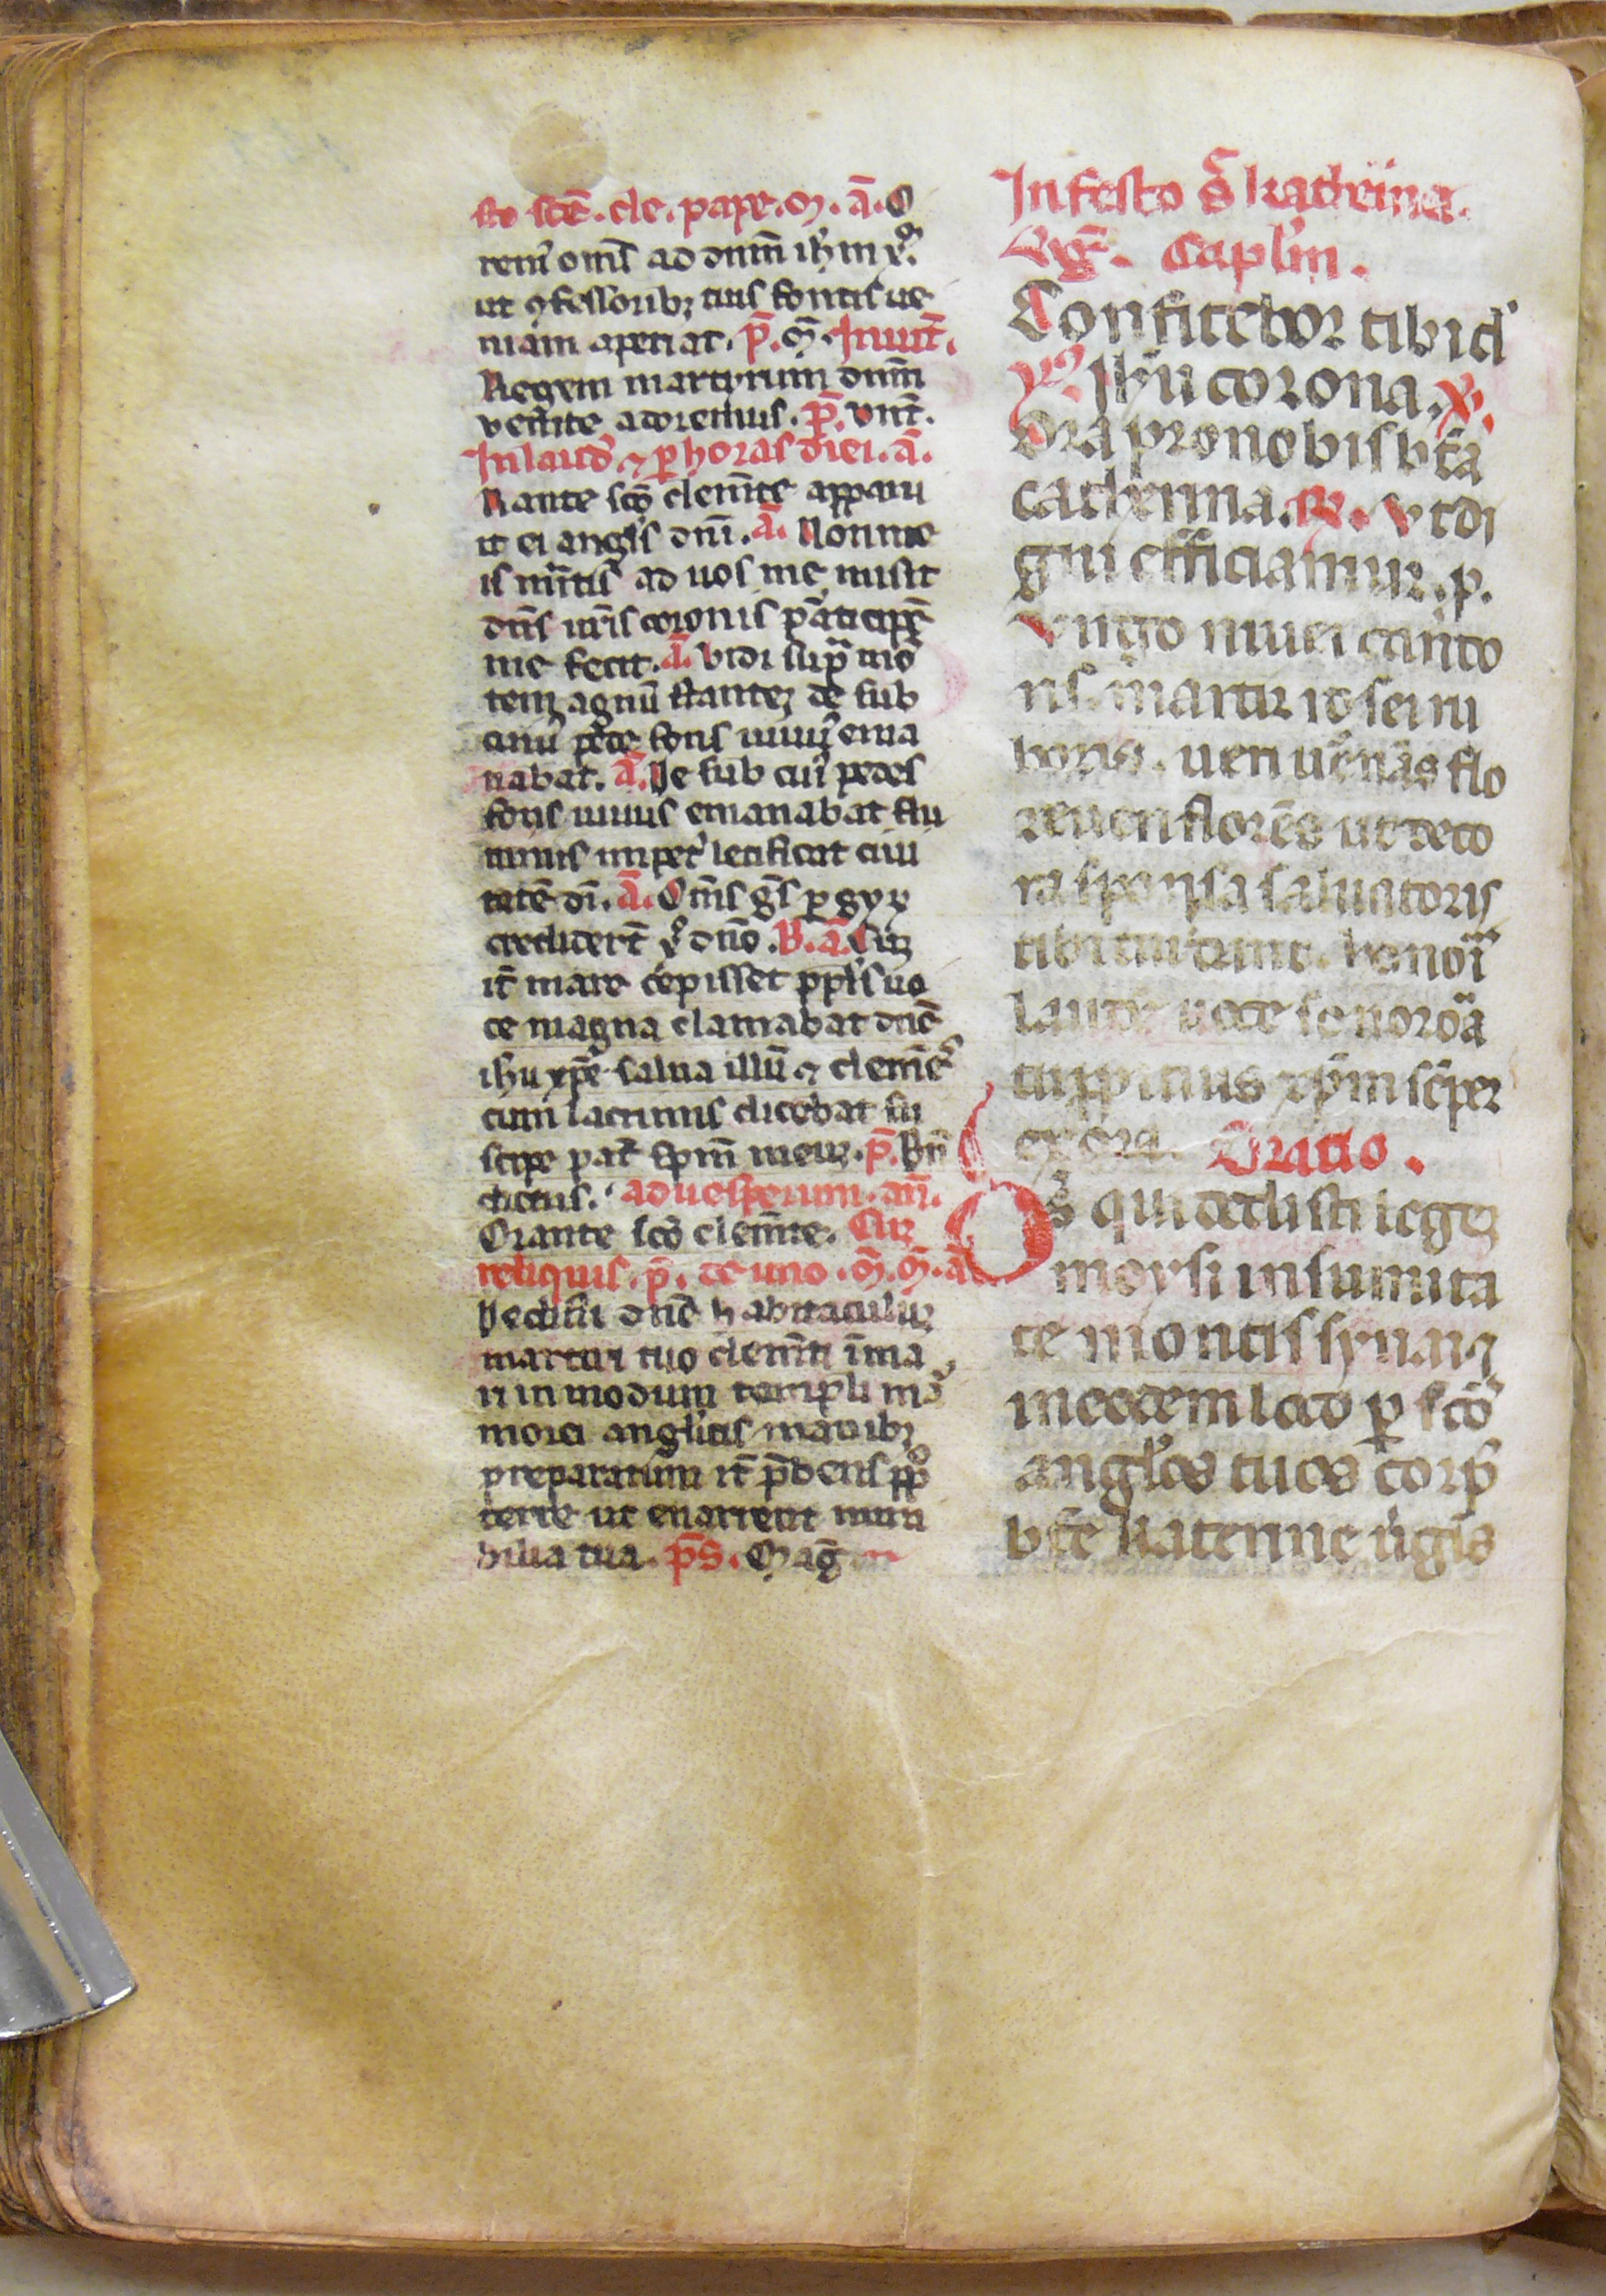 sto scē. cle. pape. m. ā. O
rem9 oms ad dnm ihm x.
ut ꝯfessoribꝫ suis fontis ue
niam aperiat. p̄. m̄. Inuit.
Regem martyrum dnm
venite adoremus. p̄. vnit.
In laud ⁊ ꝑ horas diei. ā.
Orante sco clemte apparu
it ei angls dni. ā. Non me
is mitis ad uos me misit
dns uris coronis pāticipē
me fecit. ā. Vidi supra mō
tem agnū stantēꝫ de sub
cui9 pede fons uiuus ema
nabat. ā. De sub cui9 pedes
fons uiuus emanabat flu
minis impet9 letificat ciui
tatē di. ā. Oms gs ꝑ gyꝝ
crediderūt x dno. B. ā. Cuꝫ
it mare cepisset ppls uo
ce magna clamabat dnē
ihu xpe salua illū ⁊ clemēs
cum lacrimis dicebat su
scipe pat spm meuꝫ. p̄. Bn
dictus. ad uesperum. ān.
Orante sco clemte. Cuꝫ
reliquis. p̄. de uno. m̄. m̄. ā.
Dedisti dnē habitaculuꝫ
martiri tuo clemti ī ma
ri in modum templi mar
morei anglicis manibꝫ
preparatum it p̄bens pplo
terre ut enarrent mira
bilia tua. p̄s. Mag
In festo s katherina.
Vg. Caplm.
Confitebor tibi d
y Ihu corona. v.
Ora pro nobis bta
catherina. R. vt di
gni efficiamur. p.
Virgo niuei cando
ris martir
ueri uernās flo
re ueri florēs ut deco
ra sponsa saluatoris
tibi honor
laudē uoce sonora
xpm semper
exora. Oratio.
Ds qui dedisti legeꝫ
moysi in sumita
te montis synai ⁊
in eodem loco ꝑ sctos
anglos tuos corp
bte katerine uirgis